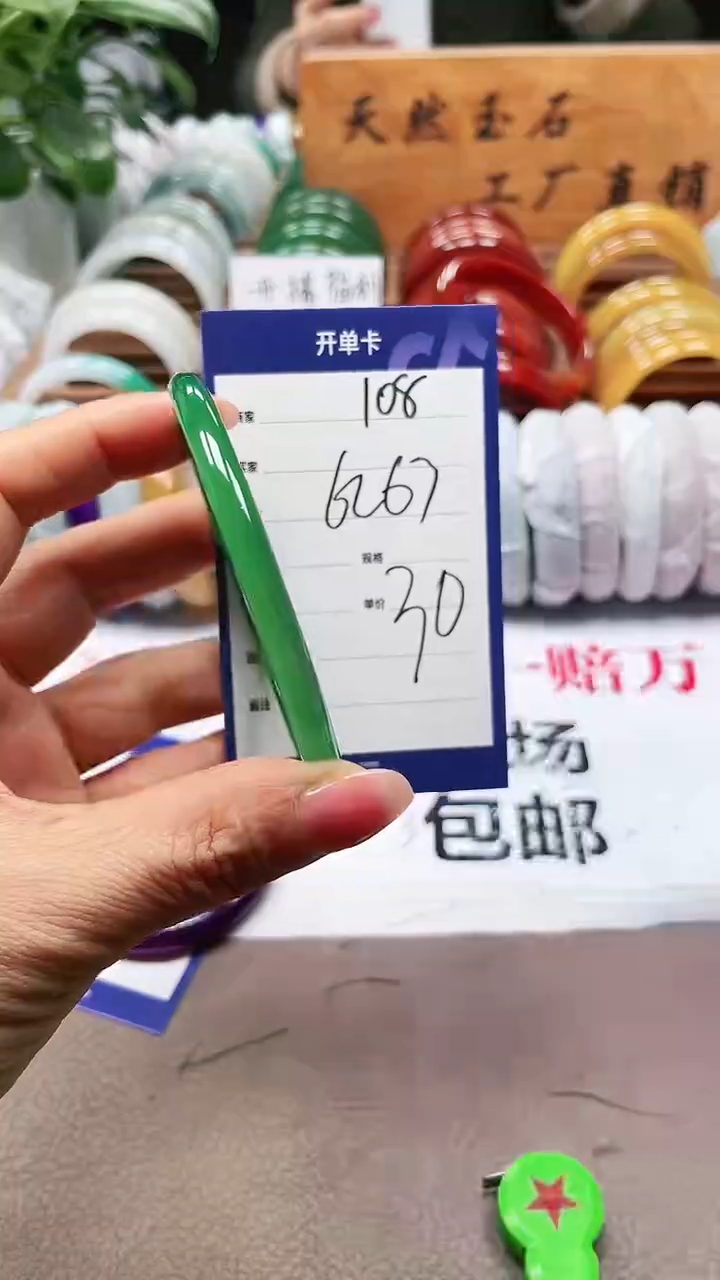 天然玉石
工厂直销
开播福利
开单卡
商家 108
买家 6267
规格
单价 30
备注
一赔万
场
包邮